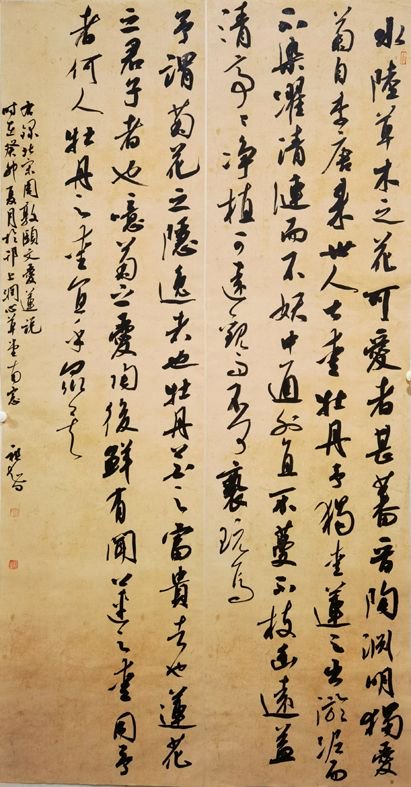 水陸草木之花可愛者甚蕃晋陶淵明獨愛
菊自李唐来世人甚爱牡丹予獨爱蓮之出淤泥而
不染濯清漣而不妖中通外直不蔓不枝香遠益
清亭々净植可遠觀而不可褻玩焉
予謂菊花之隱逸者也牡丹花之富貴者也蓮花
之君子者也噫菊之愛陶後鮮有聞蓮之爱同予
者何人牡丹之爱宜乎眾矣
右錄北宋周敦頤文愛蓮説
时在癸卯夏月於邗上潤心草堂南窗